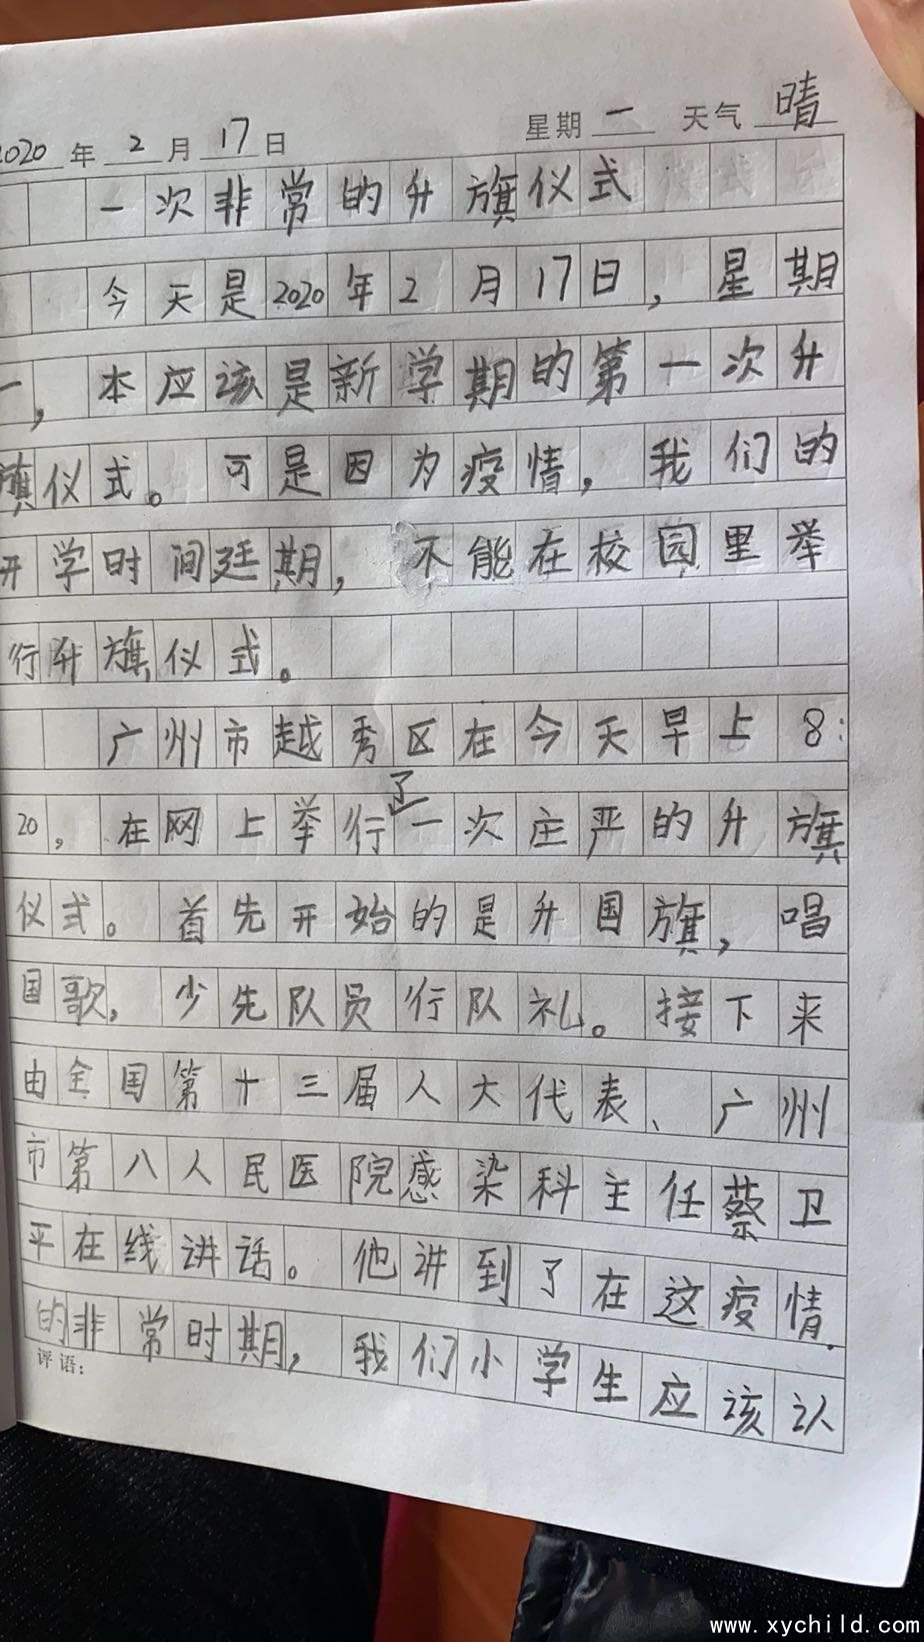 2020 年 2 月 17 日 星期 一 天气 晴
一次非常的升旗仪式
今天是2020年2月17日，星期
一，本应该是新学期的第一次升
旗仪式。可是因为疫情，我们的
开学时间延期，不能在校园里举
行升旗仪式。
广州市越秀区在今天早上8:
20，在网上举行了一次庄严的升旗
仪式。首先开始的是升国旗，唱
国歌，少先队员行队礼。接下来
由全国第十三届人大代表、广州
市第八人民医院感染科主任蔡卫
平在线讲话。他讲到了在这疫情
的非常时期，我们小学生应该认
评语：
www.xychild.com